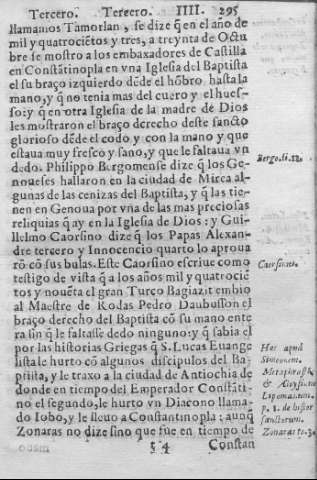 Tercero. Tercero. IIII. 295
llamamos Tamorlan, se dize q̃ en el año de
mil y quatrociẽtos y tres, a treynta de Octu
bre se mostro a los embaxadores de Castilla
en Constãtinopla en vna Iglesia del Baptista
el su braço izquierdo dẽde el hõbro hasta la
mano, y q̃ no tenia mas del cuero y el hues-
so: y q̃ en otra Iglesia de la madre de Dios
les mostraron el braço derecho deste sancto
glorioso dẽde el codo y con la mano y que
estaua muy fresco y sano, y que le faltaua vn
dedo. Philippo Bergomense dize q̃ los Ge-
Bergo. li. 12.
noueses hallaron en la ciudad de Mirea al-
gunas de las cenizas del Baptista, y q̃ las tie-
nen en Genoua por vña de las mas preciosas
reliquias q̃ ay en la Iglesia de Dios: y Gui-
llelmo Caorsino dize q̃ los Papas Alexan-
dre tercero y Innocencio quarto lo aproua
rõ cõ sus bulas. Este Caorsino escriue como
Caorsinus.
testigo de vista q̃ a los años mil y quatrociẽ
tos y nouẽta el gran Turco Bagiazit embio
al Maestre de Rodas Pedro Daubusson el
braço derecho del Baptista cõ su mano ente
ra sin q̃ le faltasse dedo ninguno: y q̃ sabia el
por las historias Griegas q̃ S. Lucas Euange
lista le hurto cõ algunos discipulos del Ba-
Hec apud
Simeonem.
ptista, y le traxo a la ciudad de Antiochia de
Metaphrasth.
donde en tiempo del Emperador Constãti-
& Aloysium
no el segundo, le hurto vn Diacono llama-
Lipomanum.
do Iobo, y le lleuo a Constantinopla: aunq̃
p. 1. de histor
sanctorum.
Zonaras no dize sino que fue en tiempo de
Zonaras to. 3.
5 4 Constan